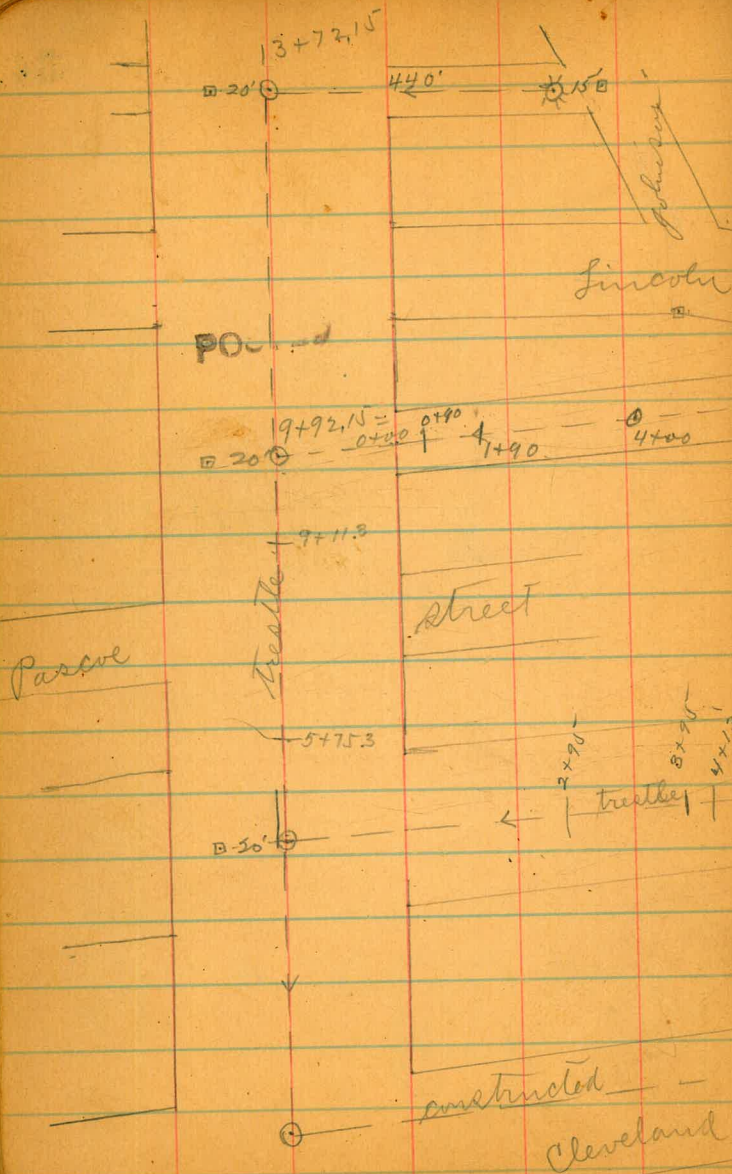 13+72.15
20' 440' 15
Johnison
Lincoln
9+92.15=
0+00 0+90
1+90
4+00
20'
9+11.3
trestle
street
Pascoe
5+75.3
2+95
3+95
trestle
constructed
Cleveland